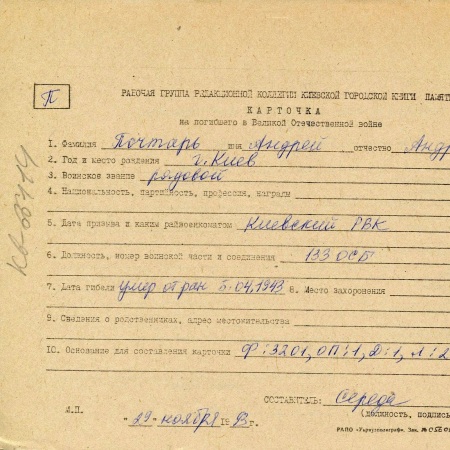 П
РАБОЧАЯ ГРУППА РЕДАКЦИОННОЙ КОЛЛЕГИИ КИЕВСКОЙ ГОРОДСКОЙ КНИГИ ПАМЯТ
КАРТОЧКА
на погибшего в Великой Отечественной войне
1. Фамилия Почтарь имя Андрей отчество Андр
2. Год и место рождения г. Киев
3. Воинское звание рядовой
4. Национальность, партийность, профессия, награды
5. Дата призыва и каким райвоенкоматом Киевский РВК
6. Должность, номер воинской части и соединения 133 ОСБ
7. Дата гибели умер от ран 5.04.1943 8. Место захоронения
9. Сведения о родственниках, адрес местожительства
10. Основание для составления карточки Ф:3201, ОП:1, Д:1, Л:2
СОСТАВИТЕЛЬ: Середа
(должность, подпись
м.п. "29" ноября 1993г.
РАПО «Укрвузполиграф». Зак. №